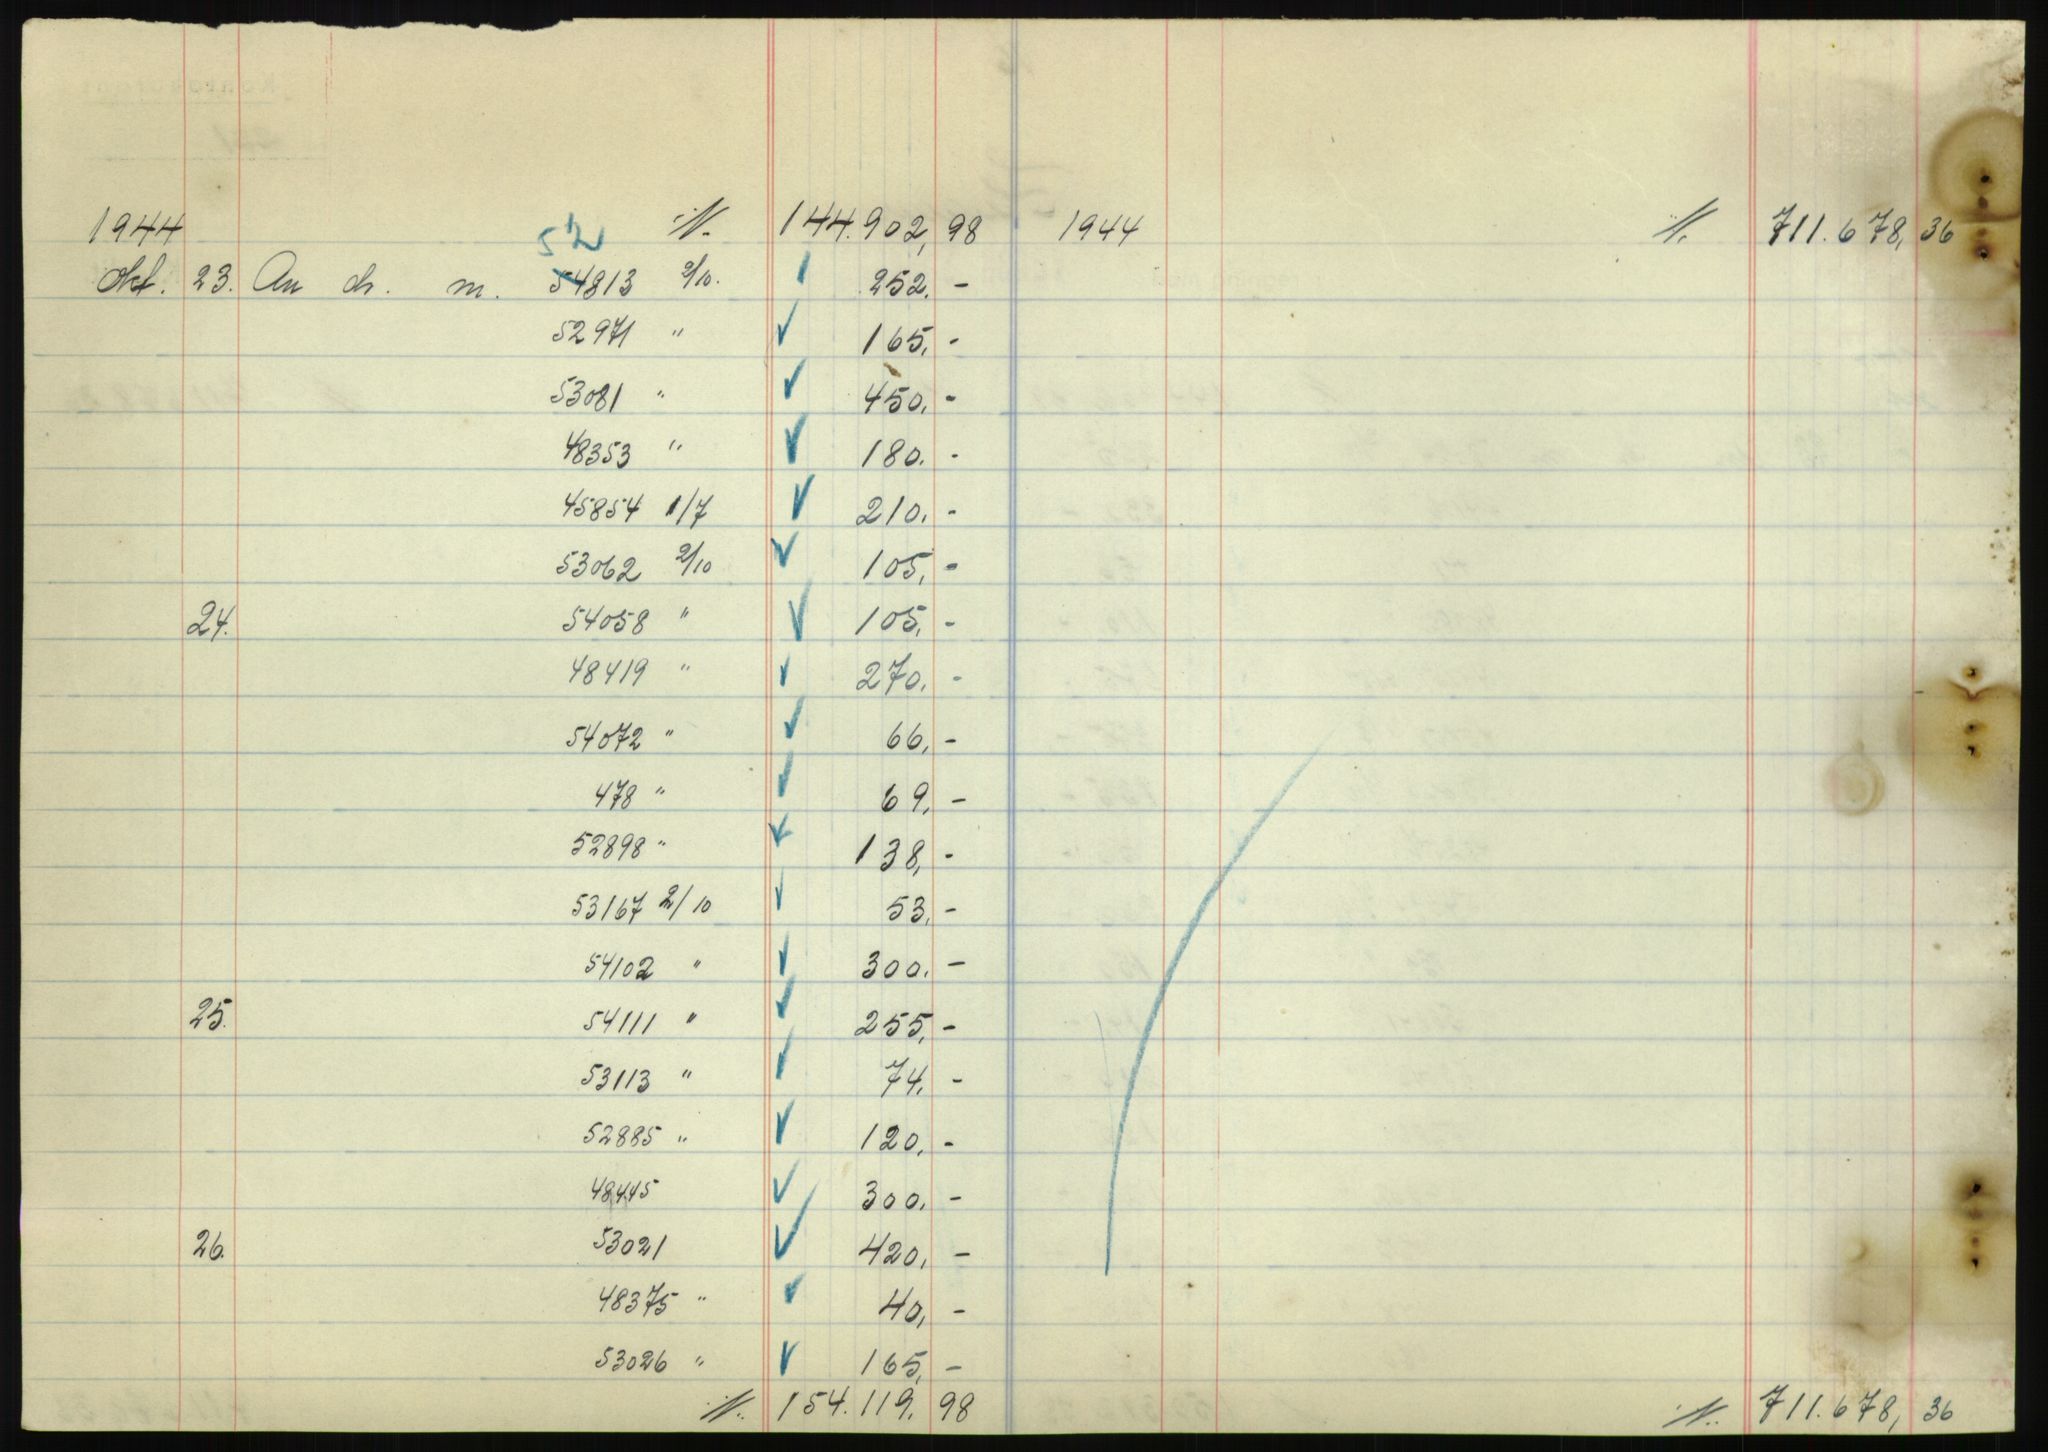 1944 ·/·. 144.902,98 1944 ·/·. 711.678,36
52
Okt. 23. An ch. m. 54813 2/10. 252.-
52971 " 165.-
53081 " 450.-
48353 " 180.-
45854 1/7 210.-
53062 2/10 105.-
24. 54058 " 105.-
48419 " 270.-
54072 " 66.-
478 " 69.-
52898 " 138.-
53167 2/10 53.-
54102 " 300.-
25. 54111 " 255.-
53113 " 74.-
52885 " 120.-
48445 300.-
26. 53021 420.-
48375 " 40.-
53026 " 165.-
·/·. 154.119,98 ·/·. 711.678,36